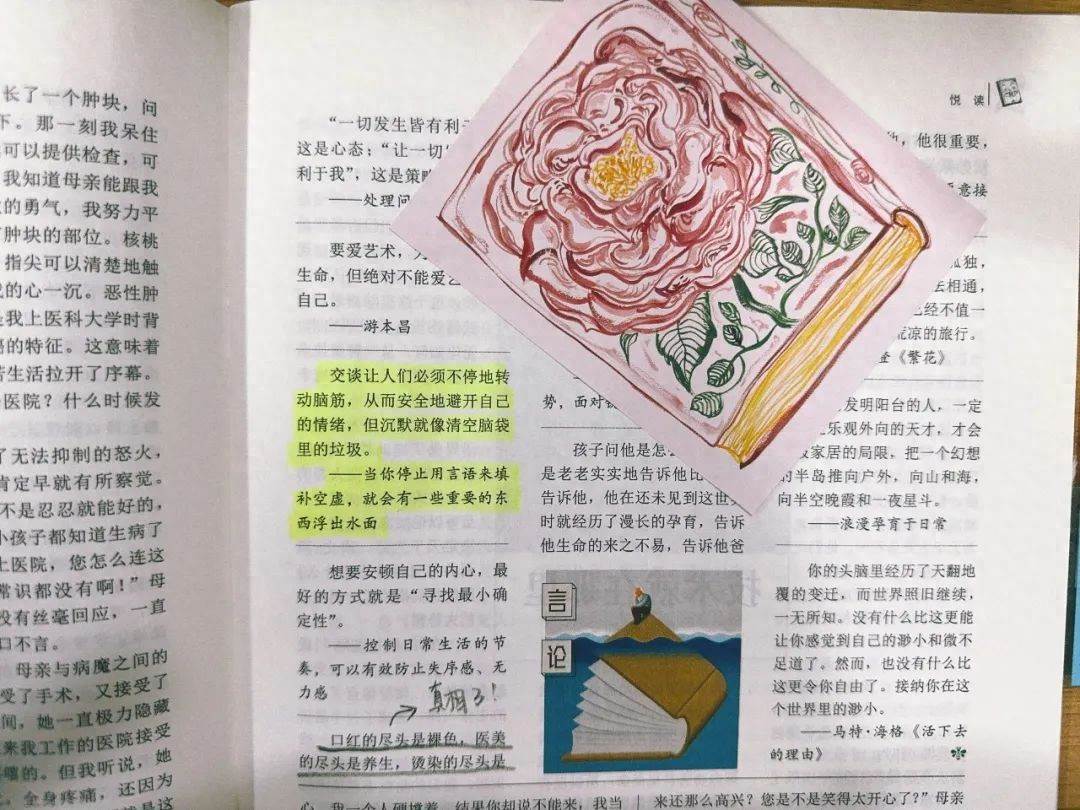 长了一个肿块，问
下。那一刻我呆住
可以提供检查，可
我知道母亲能跟我
的勇气，我努力平
肿块的部位。核桃
指尖可以清楚地触
的心一沉。恶性肿
是我上医科大学时背
的特征。这意味着
生活拉开了序幕。
医院？什么时候发
了无法抑制的怒火，
肯定早就有所察觉。
不是忍忍就能好的，
小孩子都知道生病了
上医院，您怎么连这
常识都没有啊！”母
没有丝毫回应，一直
口不言。
母亲与病魔之间的
受了手术，又接受了
间，她一直极力隐藏
来我工作的医院接受
的。但我听说，她
全身疼痛，还因为
悦 读
“一切发生皆有利于
这是心态；“让一切
利于我”，这是策略
——处理问
要爱艺术，
生命，但绝对不能爱艺
自己。
——游本昌
交谈让人们必须不停地转
动脑筋，从而安全地避开自己
的情绪，但沉默就像清空脑袋
里的垃圾。
——当你停止用言语来填
补空虚，就会有一些重要的东
西浮出水面
想要安顿自己的内心，最
好的方式就是“寻找最小确
定性”。
——控制日常生活的节
奏，可以有效防止失序感、无
力感
真相了！
口红的尽头是裸色，医美
的尽头是养生，烫染的尽头是
势，面对
孩子问他是怎么
是老老实实地告诉他比
告诉他，他在还未见到这世
时就经历了漫长的孕育，告诉
他生命的来之不易，告诉他爸
言
论
他，他很重要，
意接
孤独，
相通，
已经不值一
荒凉的旅行。
《繁花》
发明阳台的人，一定
乐观外向的天才，才会
家居的局限，把一个幻想
的半岛推向户外，向山和海，
向半空晚霞和一夜星斗。
——浪漫孕育于日常
你的头脑里经历了天翻地
覆的变迁，而世界照旧继续，
一无所知。没有什么比这更能
让你感觉到自己的渺小和微不
足道了。然而，也没有什么比
这更令你自由了。接纳你在这
个世界里的渺小。
——马特·海格《活下去
的理由》
心，我一个人硬撑着，结果你却说不能来，我当
来还那么高兴？您是不是笑得太开心了？”母亲